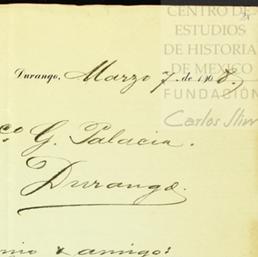 CENTRO DE
ESTUDIOS
DE HISTORIA
DE MEXICO
FUNDACIÓN
Carlos Slim
Durango, Marzo 7 de 1908.
co G. Palacia.
Durango.
amigo: